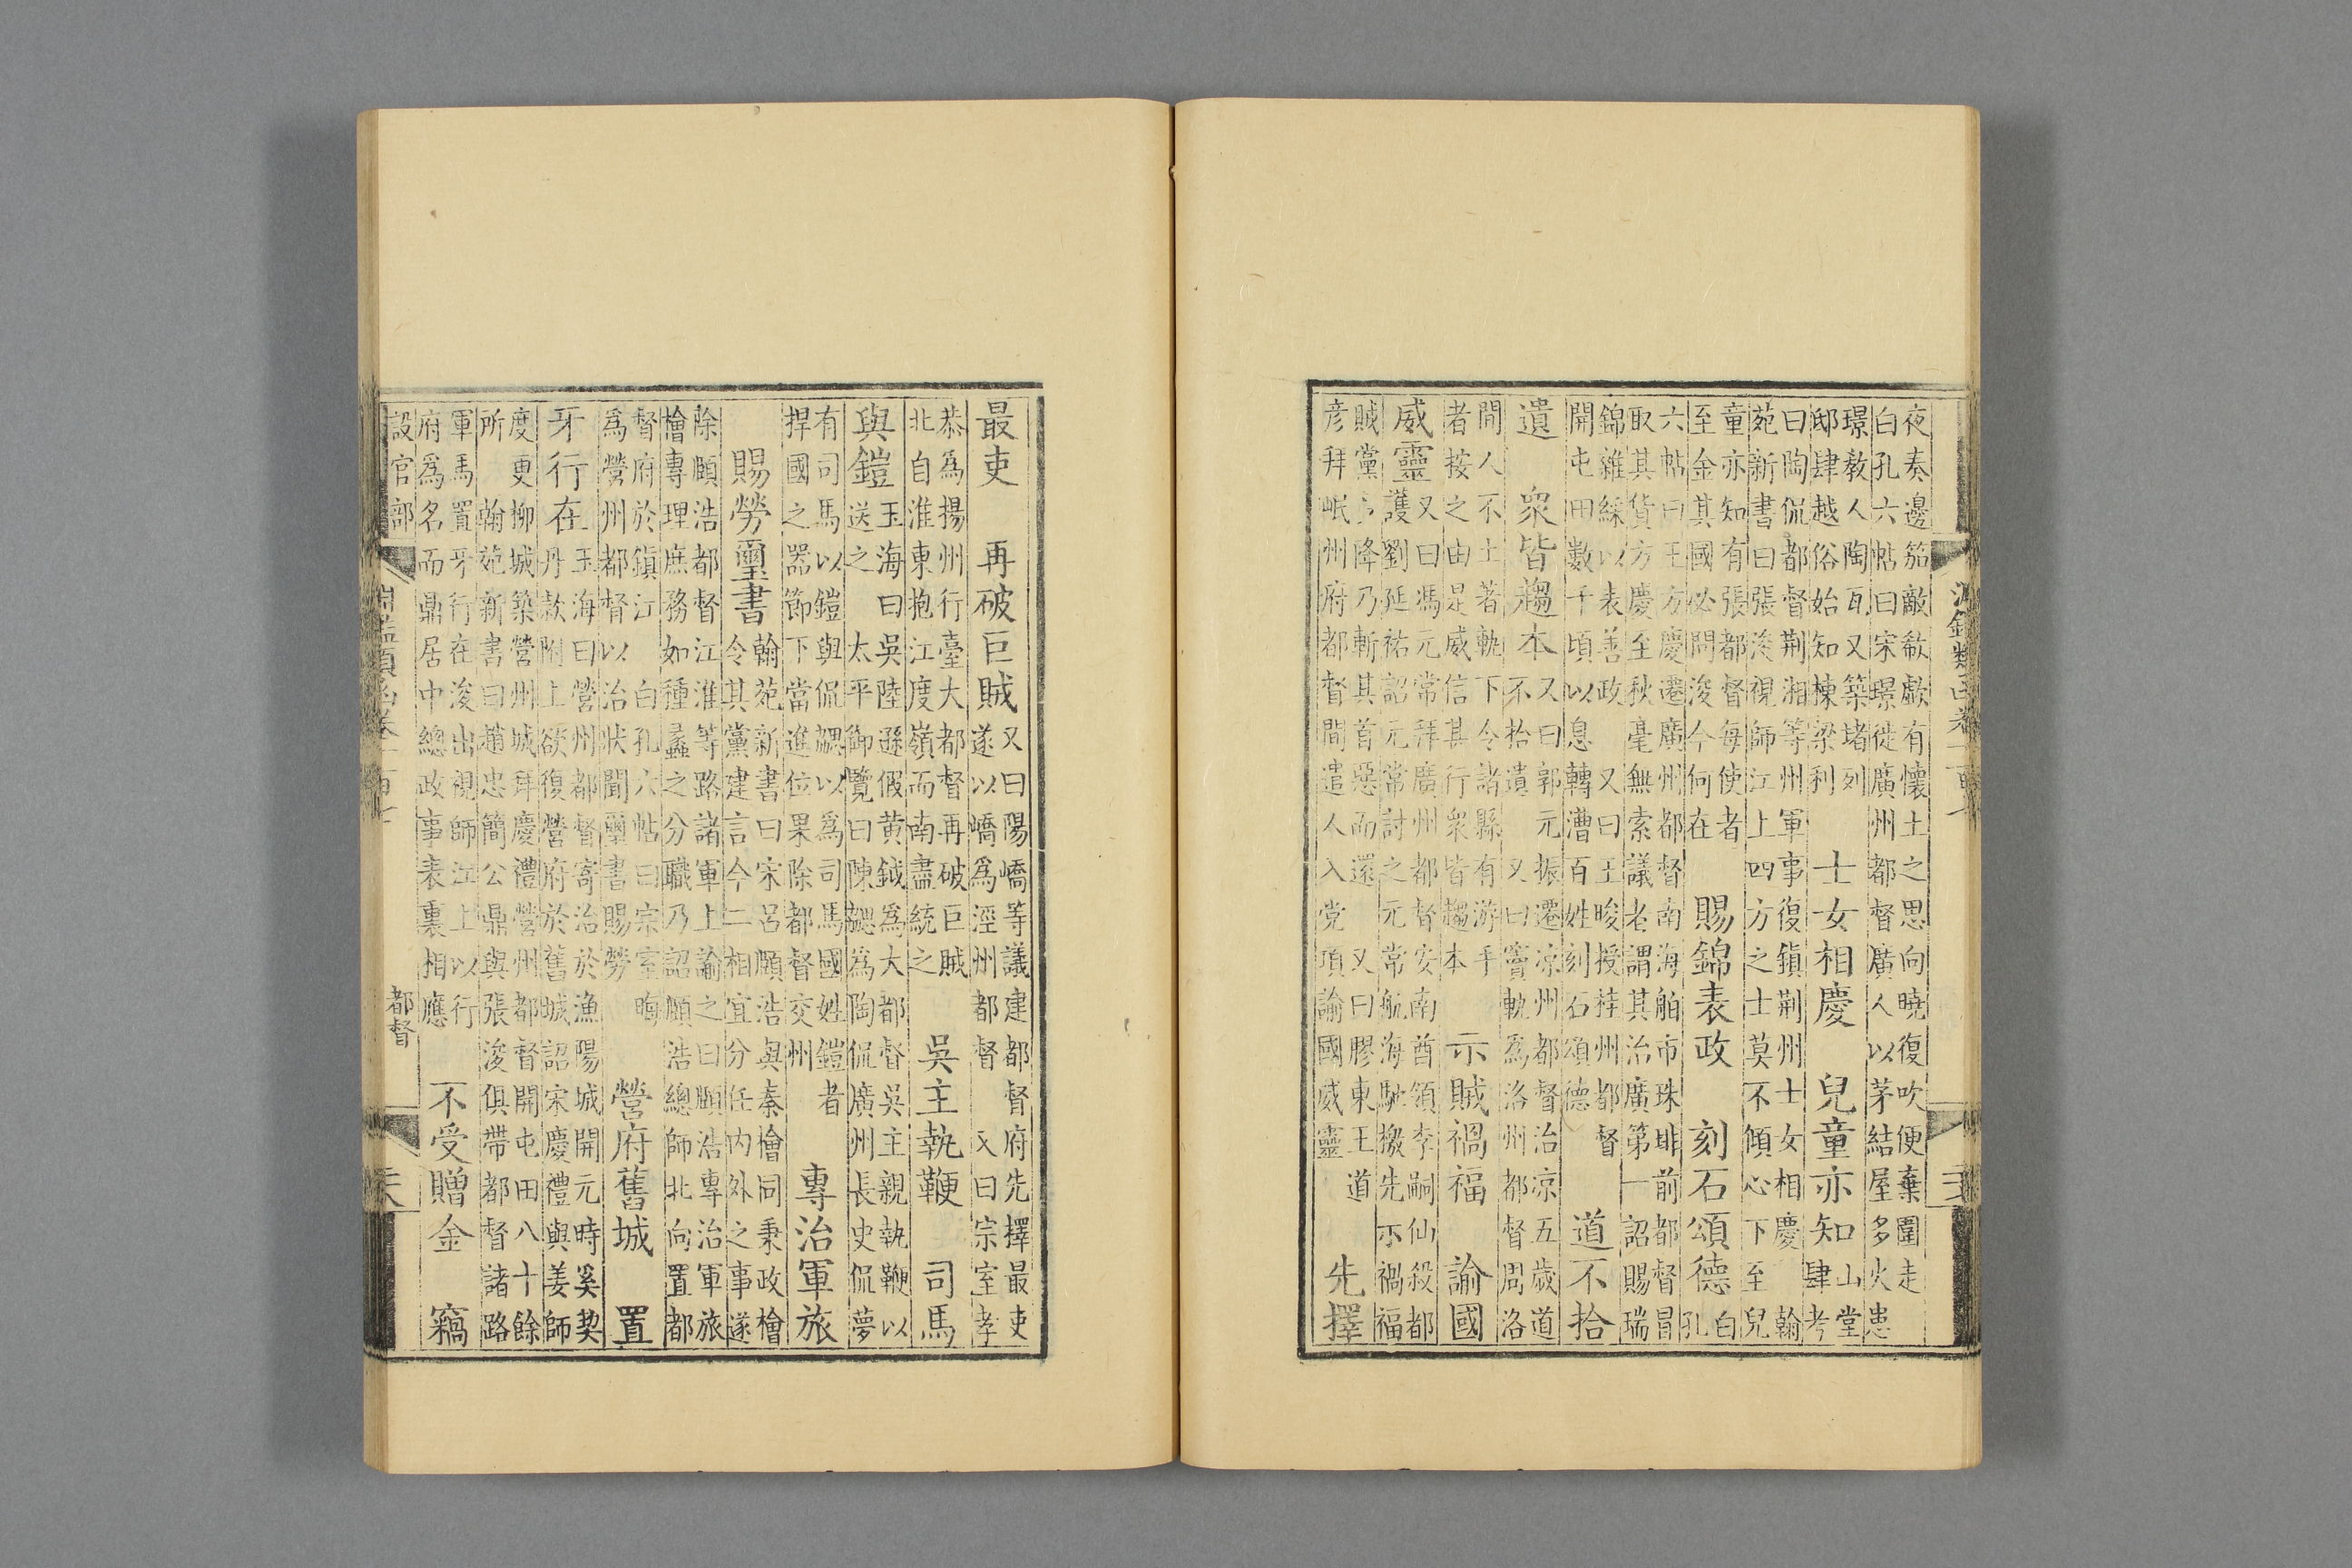 淵鑑類函卷一百七
夜奏邊笳敵欷歔有懷土之思向曉復吹便棄圍走
白孔六帖曰宋璟徙廣州都督廣人以茅結屋多火患
璟教人陶瓦又築堵列
邸肆越俗始知棟梁利
士女相慶 兒童亦知
山堂
肆考
曰陶侃都督荆湘等州軍事復鎮荆州士女相慶 翰
苑新書曰張浚視師江上四方之士莫不傾心下至兒
童亦知有張都督每使者
至金其國必問浚今何在
賜錦表政 刻石頌德
白
孔
六帖曰王方慶遷廣州都督南海舶市珠琲前都督冒
取其貨方慶至秋毫無索議者謂其治廣第一詔賜瑞
錦雜綵以表善政 又曰王晙授桂州都督
開屯田數千頃以息轉漕百姓刻石頌德
道不拾
遺 衆皆趨本
又曰郭元振遷涼州都督治涼五歲道
不拾遺 又曰竇軌為洛州都督周洛
間人不土著軌下令諸縣有游手
者按之由是威信其行衆皆趨本
示賊禍福 諭國
威靈
又曰馮元常拜廣州都督安南酋領李嗣仙殺都
護劉延祐詔元常討之元常航海馳檄先示禍福
賊黨降乃斬其首惡而還 又曰膠東王道
彦拜岷州府都督間遣人入党項諭國威靈
先擇
最吏 再破巨賊
又曰陽嶠等議建都督府先擇最吏
遂以嶠為涇州都督 又曰宗室孝
恭為揚州行臺大都督再破巨賊
北自淮東抱江度嶺而南盡統之
吳主執鞭 司馬
與鎧
玉海曰吳陸遜假黄鉞為大都督吳主親執鞭以
送之 太平御覽曰陳勰為陶侃廣州長史侃夢
有司馬以鎧與侃勰以為司馬國姓鎧者
捍國之器節下當進位果除都督交州
專治軍旅
賜勞璽書
翰苑新書曰宋呂頤浩與秦檜同秉政檜
令其黨建言今二相宜分任内外之事遂
除頤浩都督江淮等路諸軍上諭之曰頤浩專治軍旅
檜專理庶務如種蠡之分職乃詔頤浩總師北向置都
督府於鎮江 白孔六帖曰宗室晦
為營州都督以治狀聞璽書賜勞
營府舊城 置
牙行在
玉海曰營州都督寄治於漁陽城開元時奚契
丹款附上欲復營府於舊城詔宋慶禮與姜師
度更柳城築營州城拜慶禮營州都督開屯田八十餘
所 翰苑新書曰趙忠簡公鼎與張浚俱帶都督諸路
軍馬置牙行在浚出視師江上以行
府為名而鼎居中總政事表裏相應
不受贈金 竊
設官部
淵鑑類函卷一百七
都督